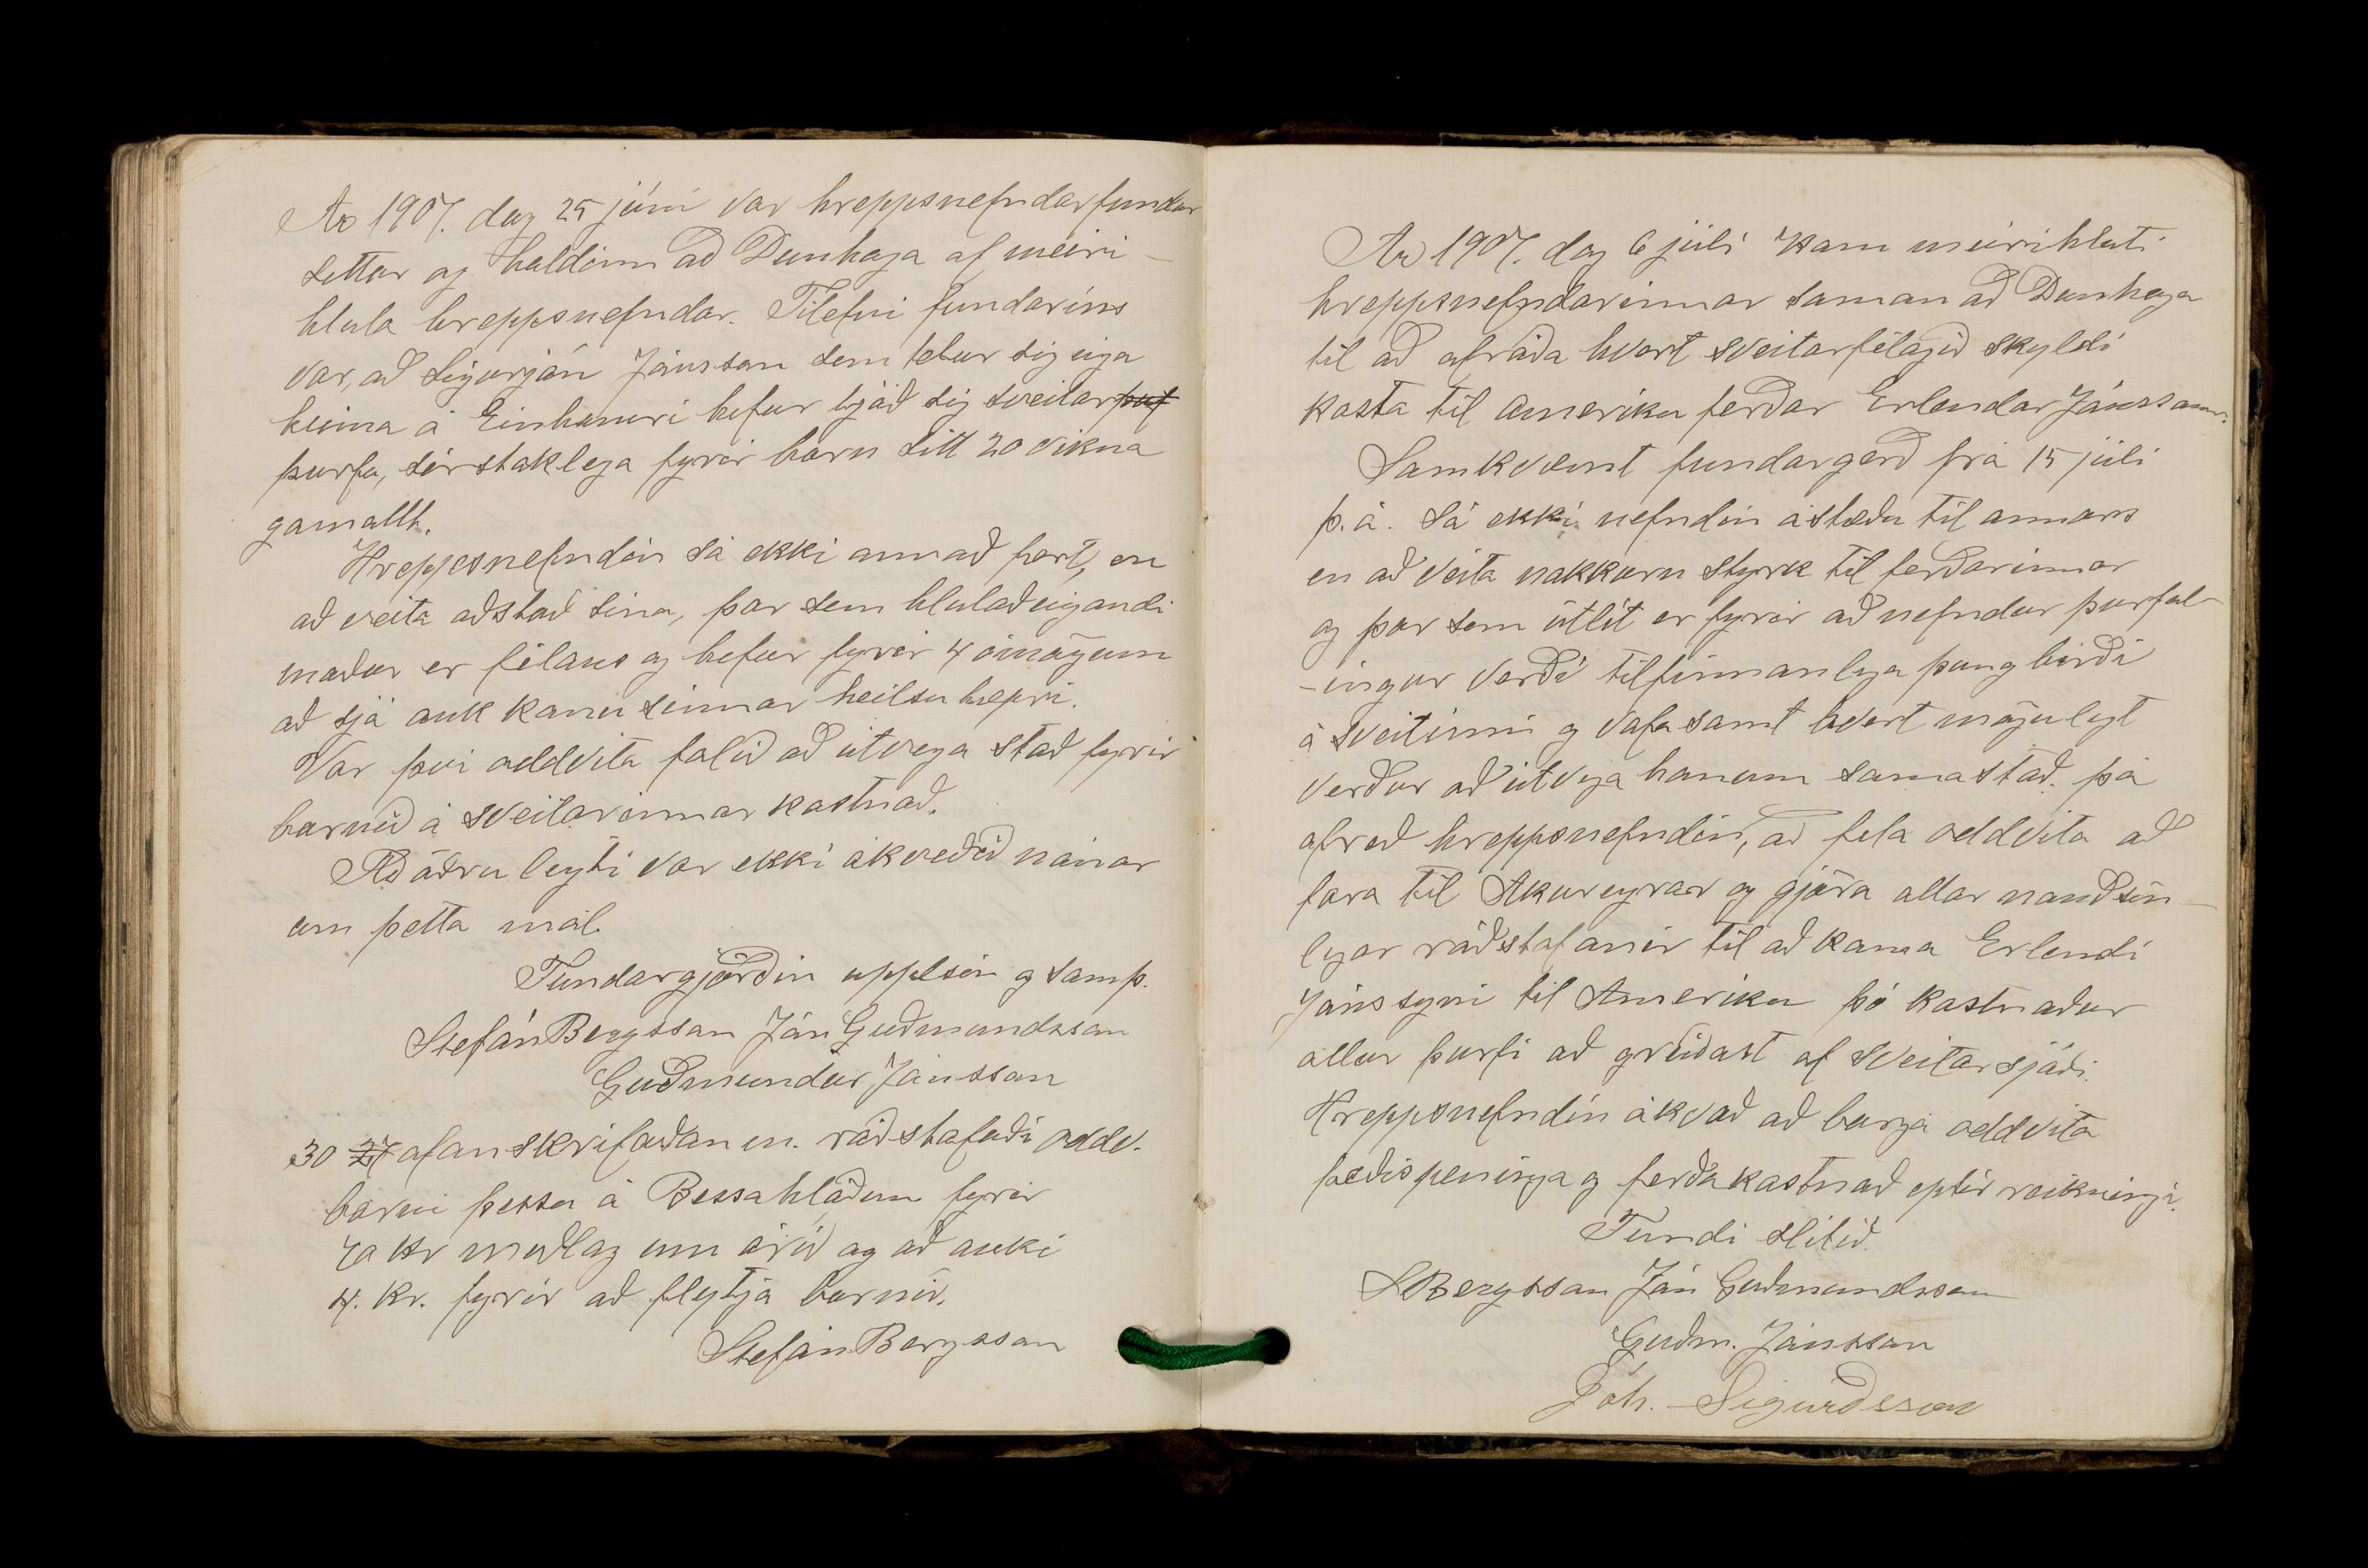 Ár 1907. dag 25 júní var hreppsnefndarfundur
settur og haldinn að Dunhaga af meiri-
hluta hreppsnefndar. Tilefni fundarins
var, að Sigurjón Jónsson sem telur sig eiga
heima á Einhamri hefur tjáð sig sveitar þuf
þurfa, sérstaklega fyrir barn sitt 20 vikna
gamallt.
Hreppsnefndin sá ekki annað fært, en
að veita aðstoð sína, þar sem hlutaðeigandi
maður er félaus og hefur fyrir 4 ómögum
að sjá auk konu sinnar heilsu tæpri.
Var því oddvita falið að útvega stað fyrir
barnið á sveitarinnar kostnað.
Að öðru leyti var ekki ákveðið nánar
um þetta mál.
Fundargjörðin upplesin og samþ.
Stefán Bergsson Jón Guðmundsson
Guðmundur Jónsson
30 27 ofanskrifaðan m. ráðstafaði oddv.
barni þessu á Bessahlöðum fyrir
70 kr meðlag um árið og að auki
4. kr. fyrir að flytja barnið.
Stefán Bergsson
Ár 1907. dag 6 júlí kom meirihluti
hreppsnefndarinnar saman að Dunhaga
til að afráða hvort sveitarfélagið skyldi
kosta til Ameríku ferðar Erlendar Jónssonar.
Samkvæmt fundargerð frá 15 júlí
þ. á. sá ekki nefndin ástæðu til annars
en að veita nokkurn styrk til ferðarinnar
og þar sem útlit er fyrir að nefndur þurfal-
-ingur verði tilfinnanlega þung birði
á sveitinni og vafasamt hvort mögulegt
verður að útvega honum samastað. þá
afreð hreppsnefndin, að fela oddvita að
fara til Akureyrar og gjöra allar nauðsin-
legar ráðstafanir til að koma Erlendi
Jónssyni til Ameríku þó kostnaður
allur þurfi að greiðast af sveitarsjóði.
Hreppsnefndin ákvað að borga oddvita
fæðispeninga og ferðakostnað eptir reikningi.
Fundi slitið.
SBergsson Jón Guðmundsson
Guðm. Jónsson
Jóh. Sigurðsson